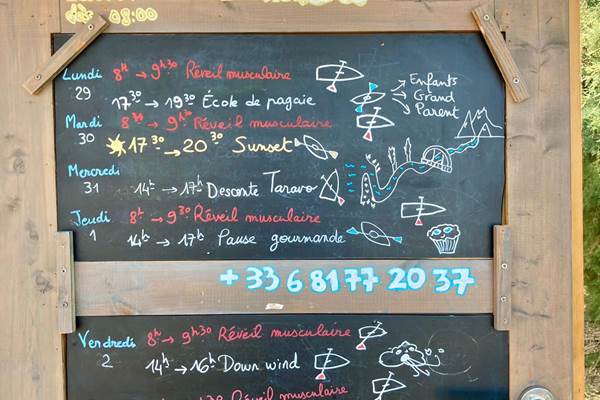 08:00
Lundi 8h → 9h30 Réveil musculaire
29
17 30 → 19 30 École de pagaie
Enfants
Grand
Parent
Mardi 8h → 9h30 Réveil musculaire
30
17 30 → 20 30 Sunset
Mercredi
31 14h → 17h Descente Taravo
Jeudi 8h → 9 30 Réveil musculaire
1 14h → 17h Pause gourmande
+ 33 6 81 77 20 37
Vendredi 8h → 9h30 Réveil musculaire
2 14h → 16h Down wind
Réveil musculaire